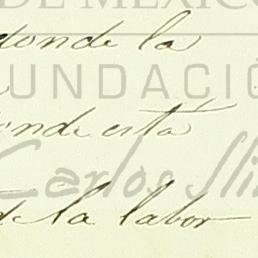 DE MÉXICO
donde la
FUNDACIÓ
onde está
Carlos Sli
de la labor